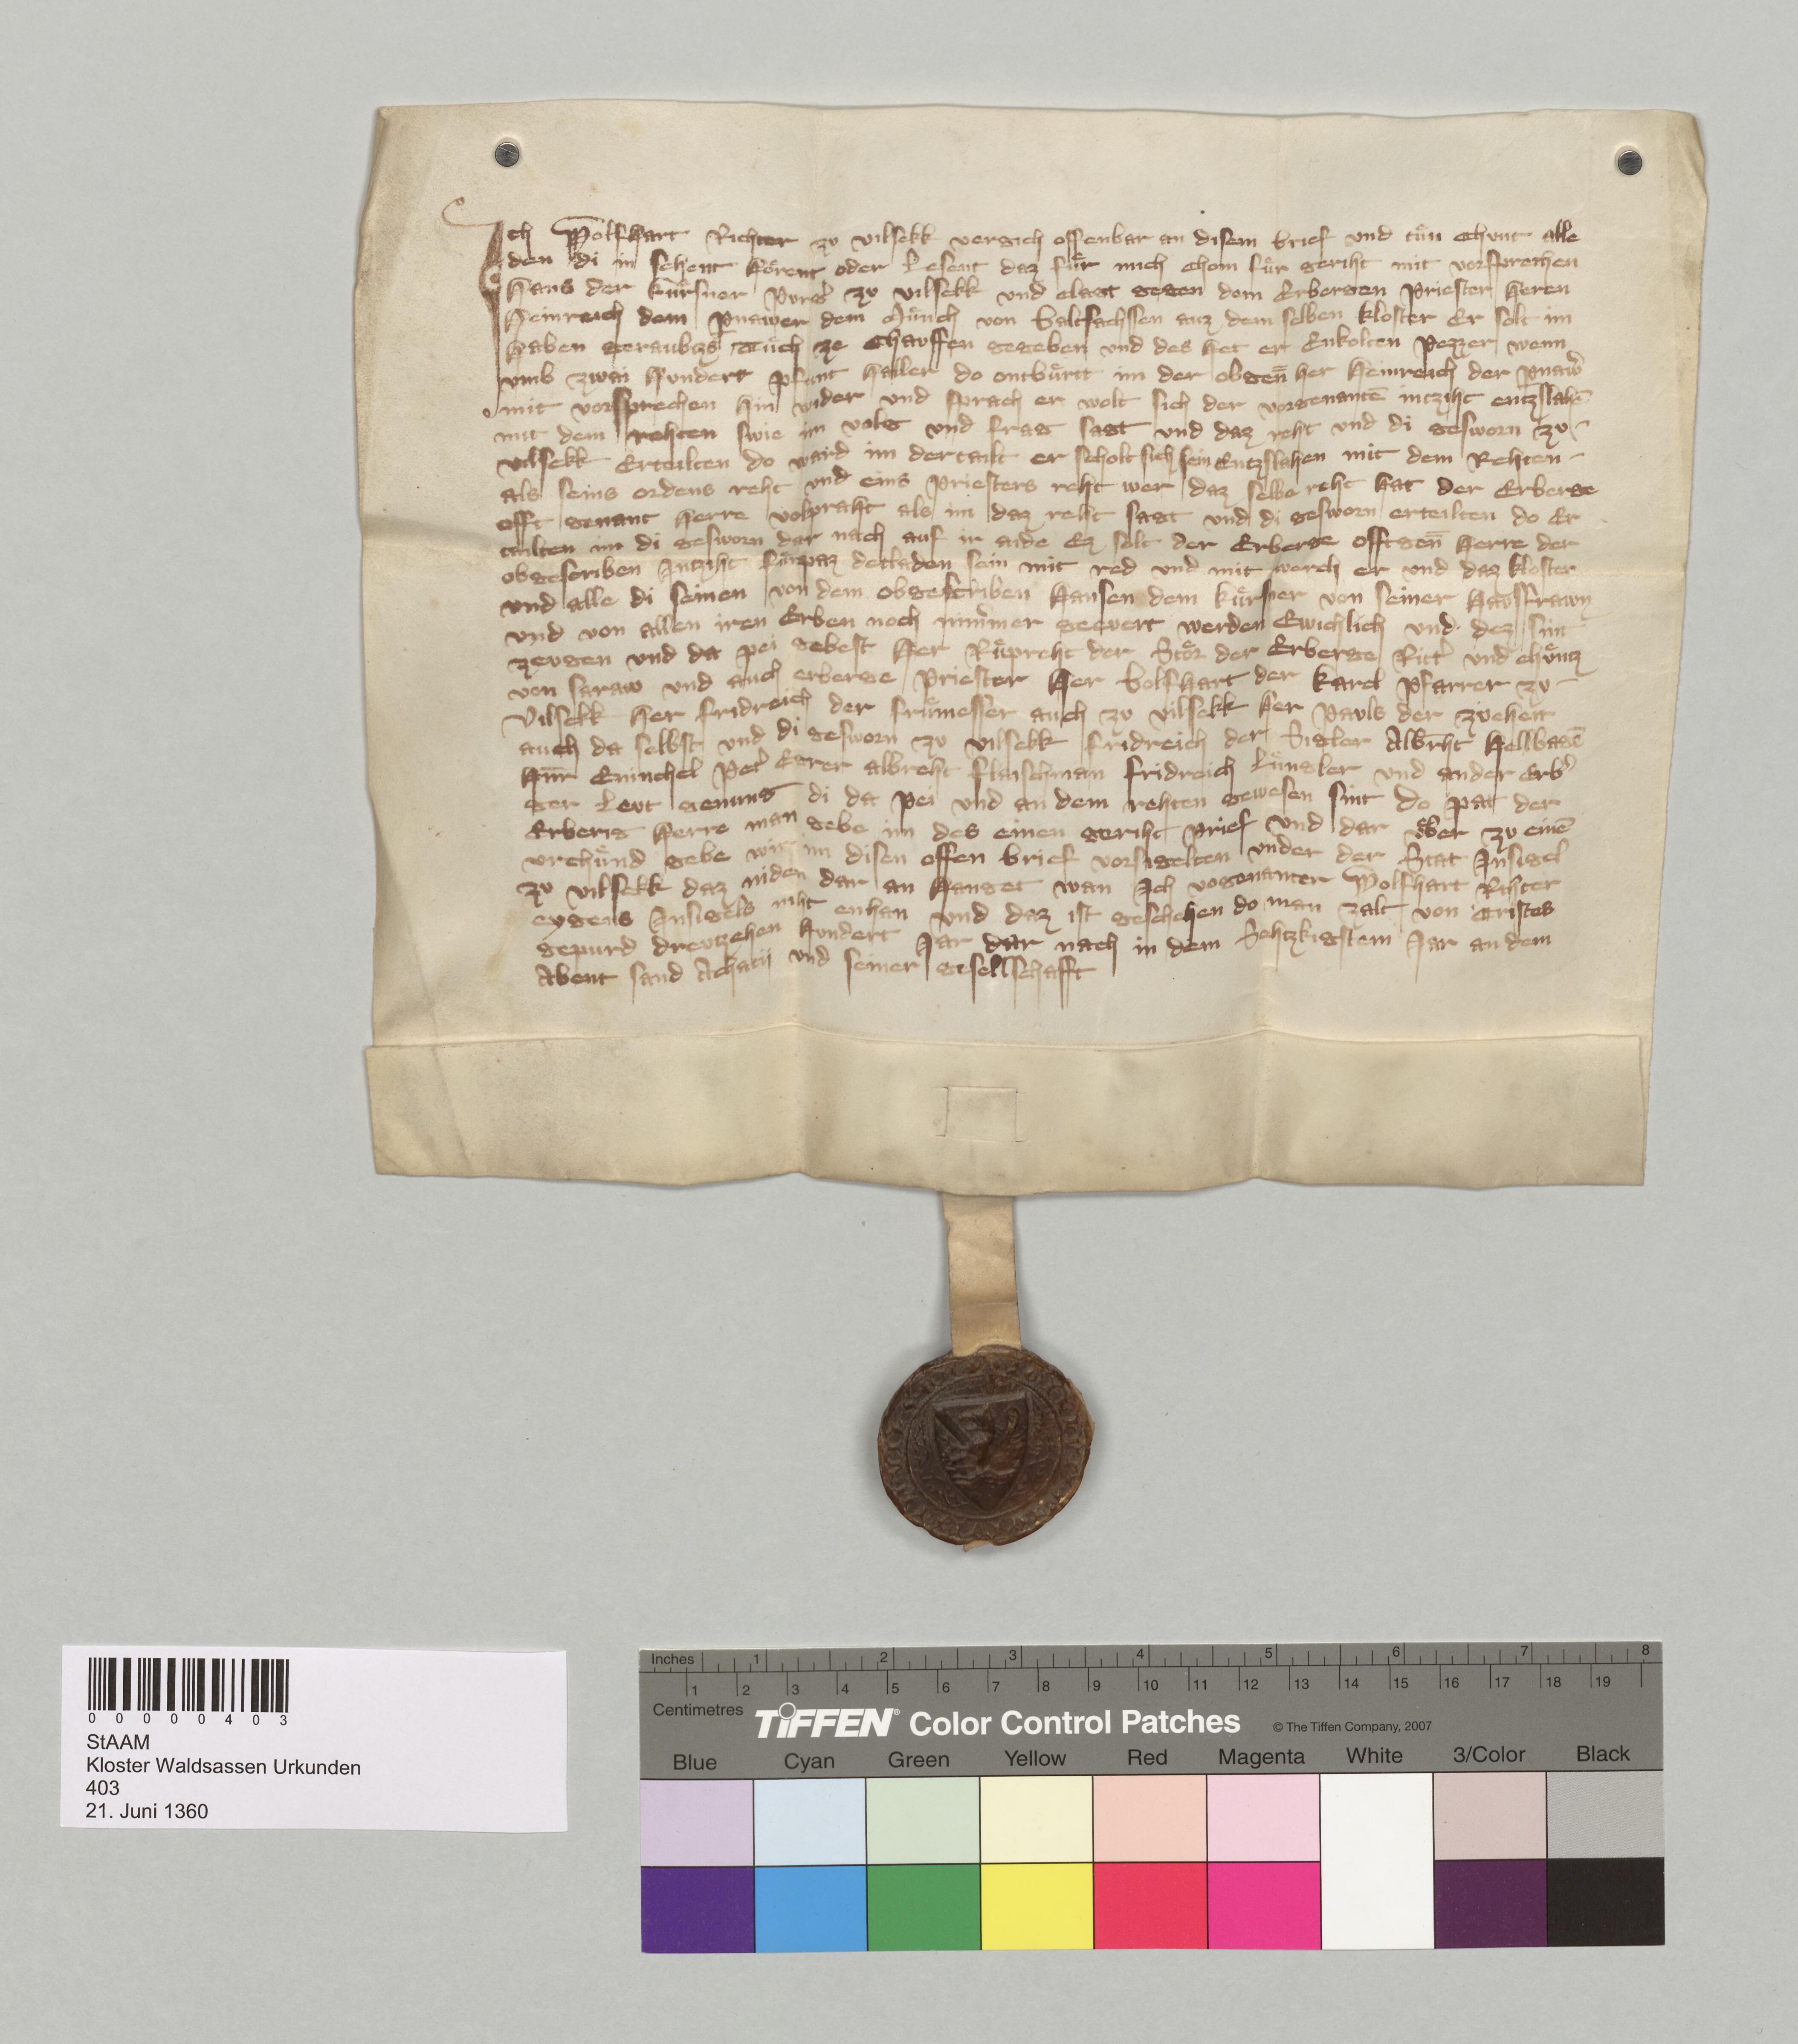 Ich Wolfhart Richter zv vilsekk vergich offenbar an disem brief vnd tuͤn chvnt alle
den di in sehent hoͤrent oder Lesent daz fuͤr mich chom fuͤr geriht mit vorsprechen
Hans der kuͤrsner Purg̓ zv vilsekk vnd clagt gegen dem Erbergen Priester heren
Heinreich dem Pnawer dem Muͤnch von Waltsachssen auz dem selben kloster Er solt im
haben geraubtzs Tuͤch ze Chauffen gegeben vnd des het er Enkolten Pezzer wenn
vmb zwai hundert pfunt haller do antbuͤrtt im der obgen̄ her Heinreich der pnaw̓
mit vorsprechen hin wider vnd sprach er wolt sich der vorgenantē intziht entzslahē
mit dem rehten swie im volg vnd frag sagt vnd daz reht vnd di gesworn zv
vilsekk Erteilten do ward im dertailt er scholt sich sein Entzslahen mit dem Rehten
als seins ordens reht vnd eins Priesters reht wer daz selbe reht hat der Erberge
offt genant Herre volpraht als im daz reht sagt vnd di gesworn erteilten do Er
tailten im di gesworn dar nach auf ir aide Ez solt der Erberge offtgen̄ Herre der
obgescriben Intziht fuͤrpaz detladen sein mit red vnd mit werch er vnd daz kloster
vnd alle di seinen von dem obgescriben Hansen dem kuͤrsner von seiner Hausfrawn
vnd von allen iren Erben noch nimmer geevert werden Ewichlich vnd dez sint
zevgen vnd da pei gebest Her Ruͤpreht der Stoͤr der Erberge Ritt̓ vnd chuͤntz
von saraw vnd auch erberge Priester Her Wolfhart der karel Pfarrer zv
Vilsekk Her fridreich der fruͤmesser auch zv vilsekk her Pauls der zvehent
auch da selbst vnd di gesworn zv vilsekk fridreich der Sigler Albr̄ht Hellbagē
Eninchel Pet̓ albreht flaischman fridreich vnd ander Erb̓
ger Levt genung di da Pei vnd an dem rehten gewesen sint do pat der
Erberig Herre man gebe im des einen geriht Prief vnd dar uͤber zv einē
vrchuͤnd gebe wir im disen offen brief vorsigelten vnder der Stat Insigel
zv vilsekk daz niden dar an hanget wan Ich vogenanter Wolfhart Rihter
eygens Insigels niht enhan vnd daz ist geschehen do man zalt von Cristes
gepurd drevtzehen hundert Jar dar nach in dem Sehtzkigstem Jar an dem
Abent sand Achatii vnd seiner gesellschafft
0 0 0 0 0 4 0 3
StAAM
Kloster Waldsassen Urkunden
403
21. Juni 1360
Inches 1 2 3 4 5 6 7 8
1 2 3 4 5 6 7 8 9 10 11 12 13 14 15 16 17 18 19
Centimetres
TIFFEN® Color Control Patches © The Tiffen Company, 2007
Blue Cyan Green Yellow Red Magenta White 3/Color Black